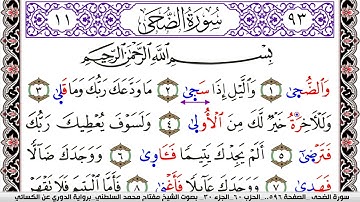 ٩٣ سُورَةُ الضُّحَىٰ ١١
بِسْمِ ٱللَّهِ ٱلرَّحْمَٰنِ ٱلرَّحِيمِ
وَٱلضُّحَىٰ ١ وَٱلَّيْلِ إِذَا سَجَىٰ ٢ مَا وَدَّعَكَ رَبُّكَ وَمَا قَلَىٰ ٣
وَلَلْأَخِرَةُ خَيْرٌ لَّكَ مِنَ ٱلْأُولَىٰ ٤ وَلَسَوْفَ يُعْطِيكَ رَبُّكَ
فَتَرْضَىٰ ٥ أَلَمْ يَجِدْكَ يَتِيمًا فَـَٔاوَىٰ ٦ وَوَجَدَكَ ضَآلًّا
فَهَدَىٰ ٧ وَوَجَدَكَ عَآئِلًا فَأَغْنَىٰ ٨ فَأَمَّا ٱلْيَتِيمَ فَلَا تَقْهَرْ
سورة الضحى الصفحة ٥٩٦ـ الحزب ٦٠ الجزء ٣٠ بصوت الشيخ مفتاح محمد السلطني برواية الدوري عن الكسائي